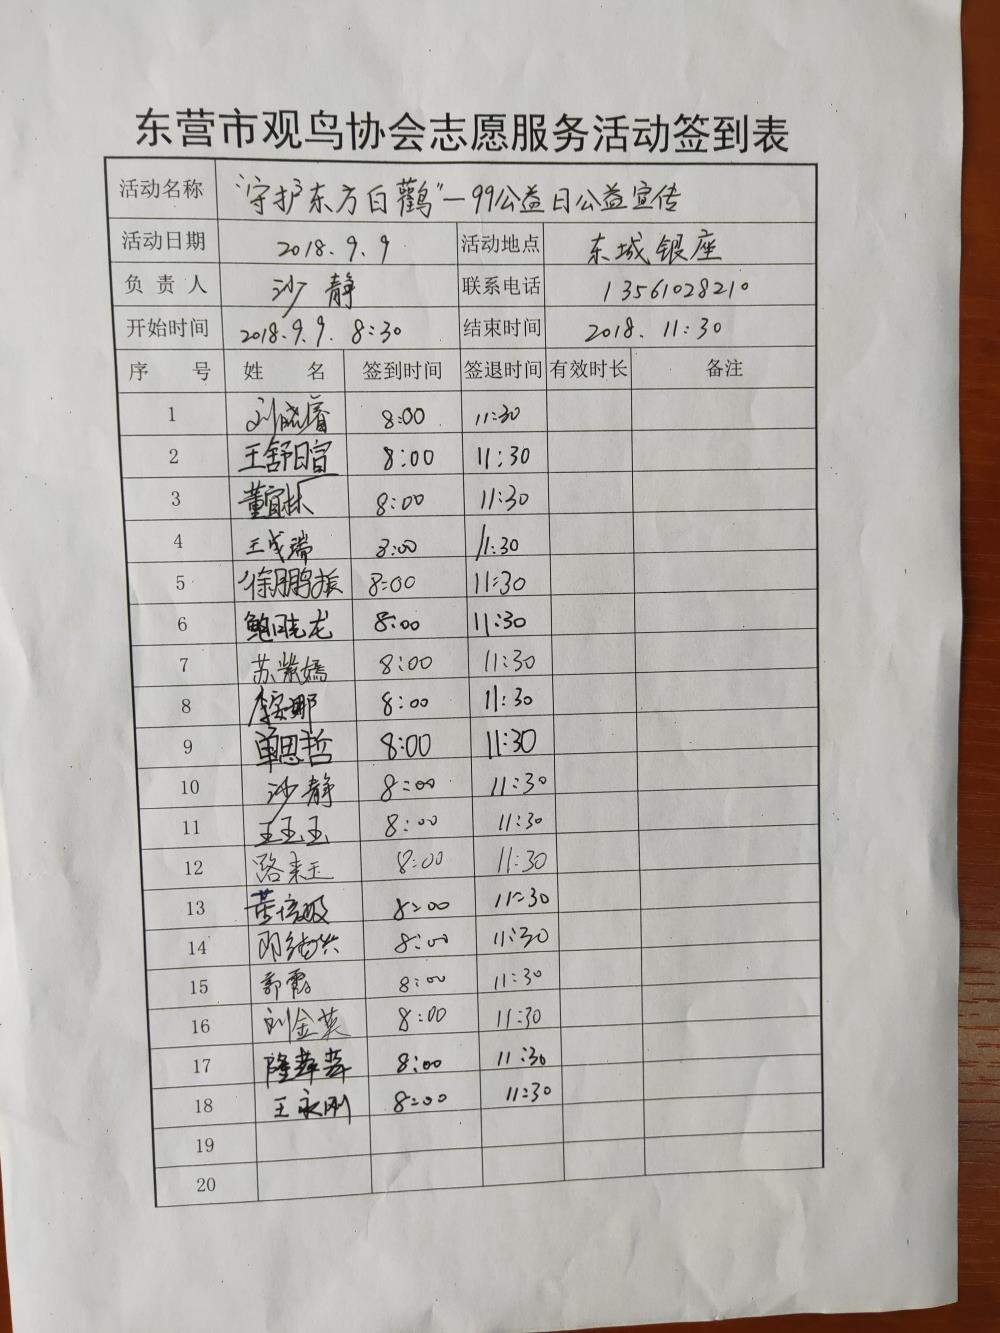 东营市观鸟协会志愿服务活动签到表
活动名称 "守护东方白鹳"—99公益日公益宣传
活动日期 2018.9.9 活动地点 东城银座
负责人 沙静 联系电话 13561028210
开始时间 2018.9.9. 8:30 结束时间 2018. 11:30
序号 姓名 签到时间 签退时间 有效时长 备注
1 刘晓睿 8:00 11:30
2 王舒暄 8:00 11:30
3 董宜林 8:00 11:30
4 王成瑞 8:00 11:30
5 徐鹏振 8:00 11:30
6 鲍晓龙 8:00 11:30
7 苏紫嫣 8:00 11:30
8 李安娜 8:00 11:30
9 单思哲 8:00 11:30
10 沙静 8:00 11:30
11 王玉玉 8:00 11:30
12 路来玉 8:00 11:30
13 8:00 11:30
14 8:00 11:30
15 郭霞 8:00 11:30
16 刘金英 8:00 11:30
17 隆苹苹 8:00 11:30
18 王永刚 8:00 11:30
19
20